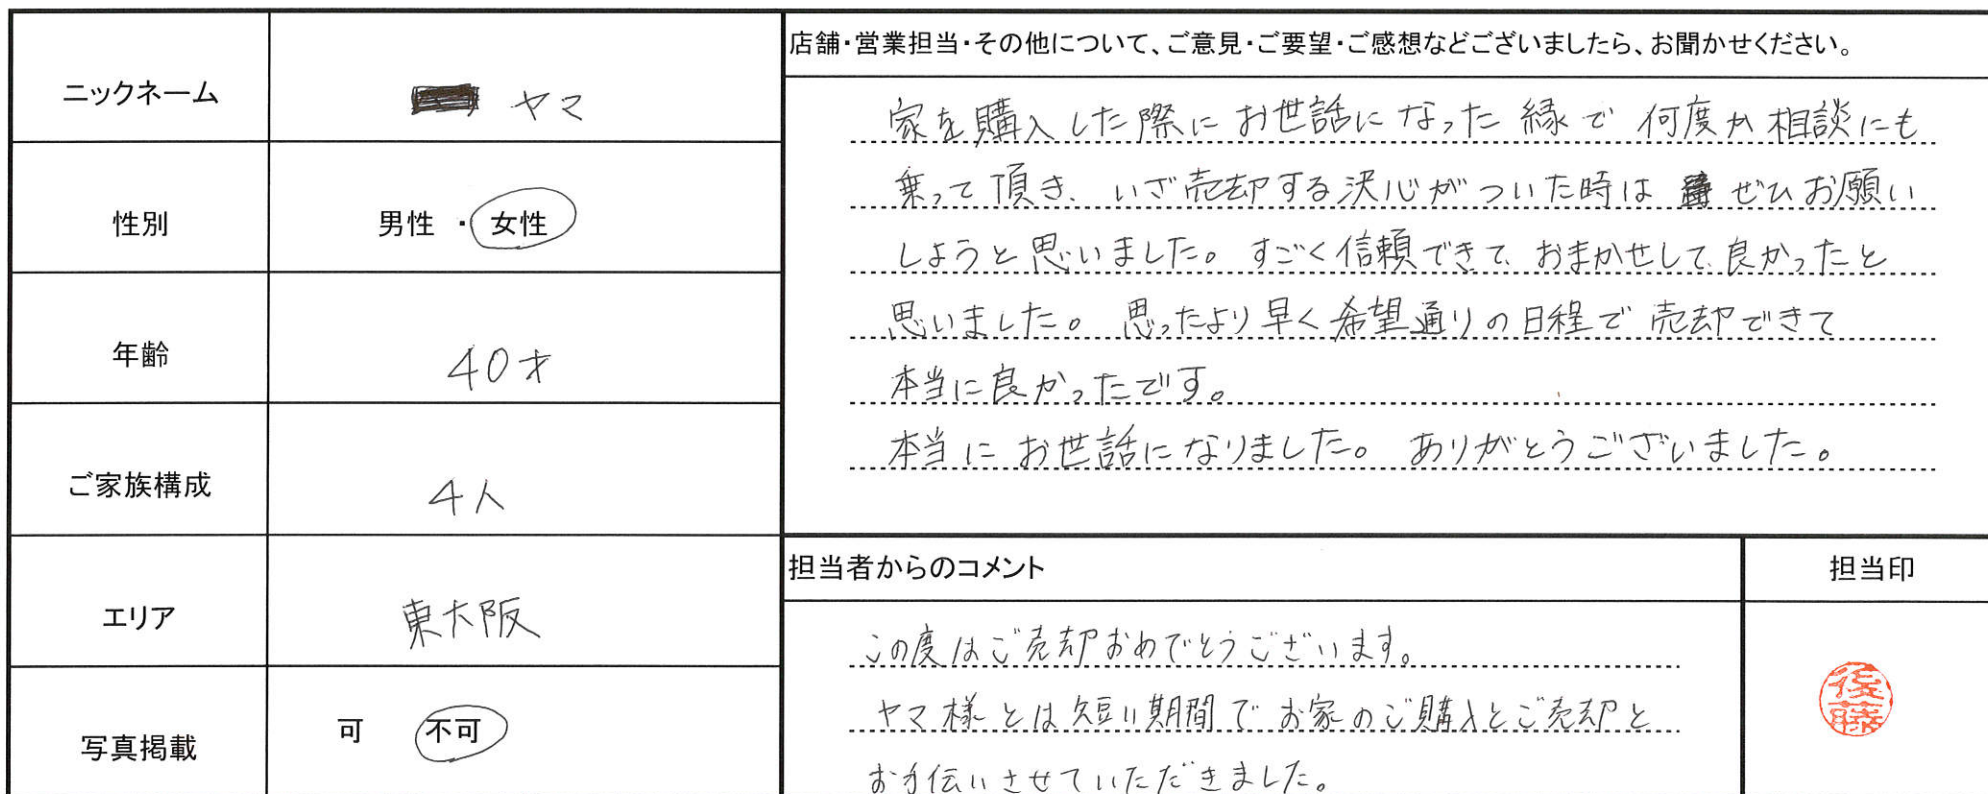 ニックネーム
ヤマ
性別
男性・女性
年齢
40才
ご家族構成
4人
エリア
東大阪
写真掲載
可 不可
店舗・営業担当・その他について、ご意見・ご要望・ご感想などございましたら、お聞かせください。
家を購入した際にお世話になった縁で何度か相談にも
乗って頂き、いざ売却する決心がついた時は ぜひお願い
しようと思いました。すごく信頼できて、おまかせして、良かったと
思いました。思ったより早く希望通りの日程で売却できて
本当に良かったです。
本当にお世話になりました。ありがとうございました。
担当者からのコメント
この度はご売却おめでとうございます。
ヤマ様とは短い期間でお家のご購入とご売却と
お手伝いさせていただきました。
担当印
後藤